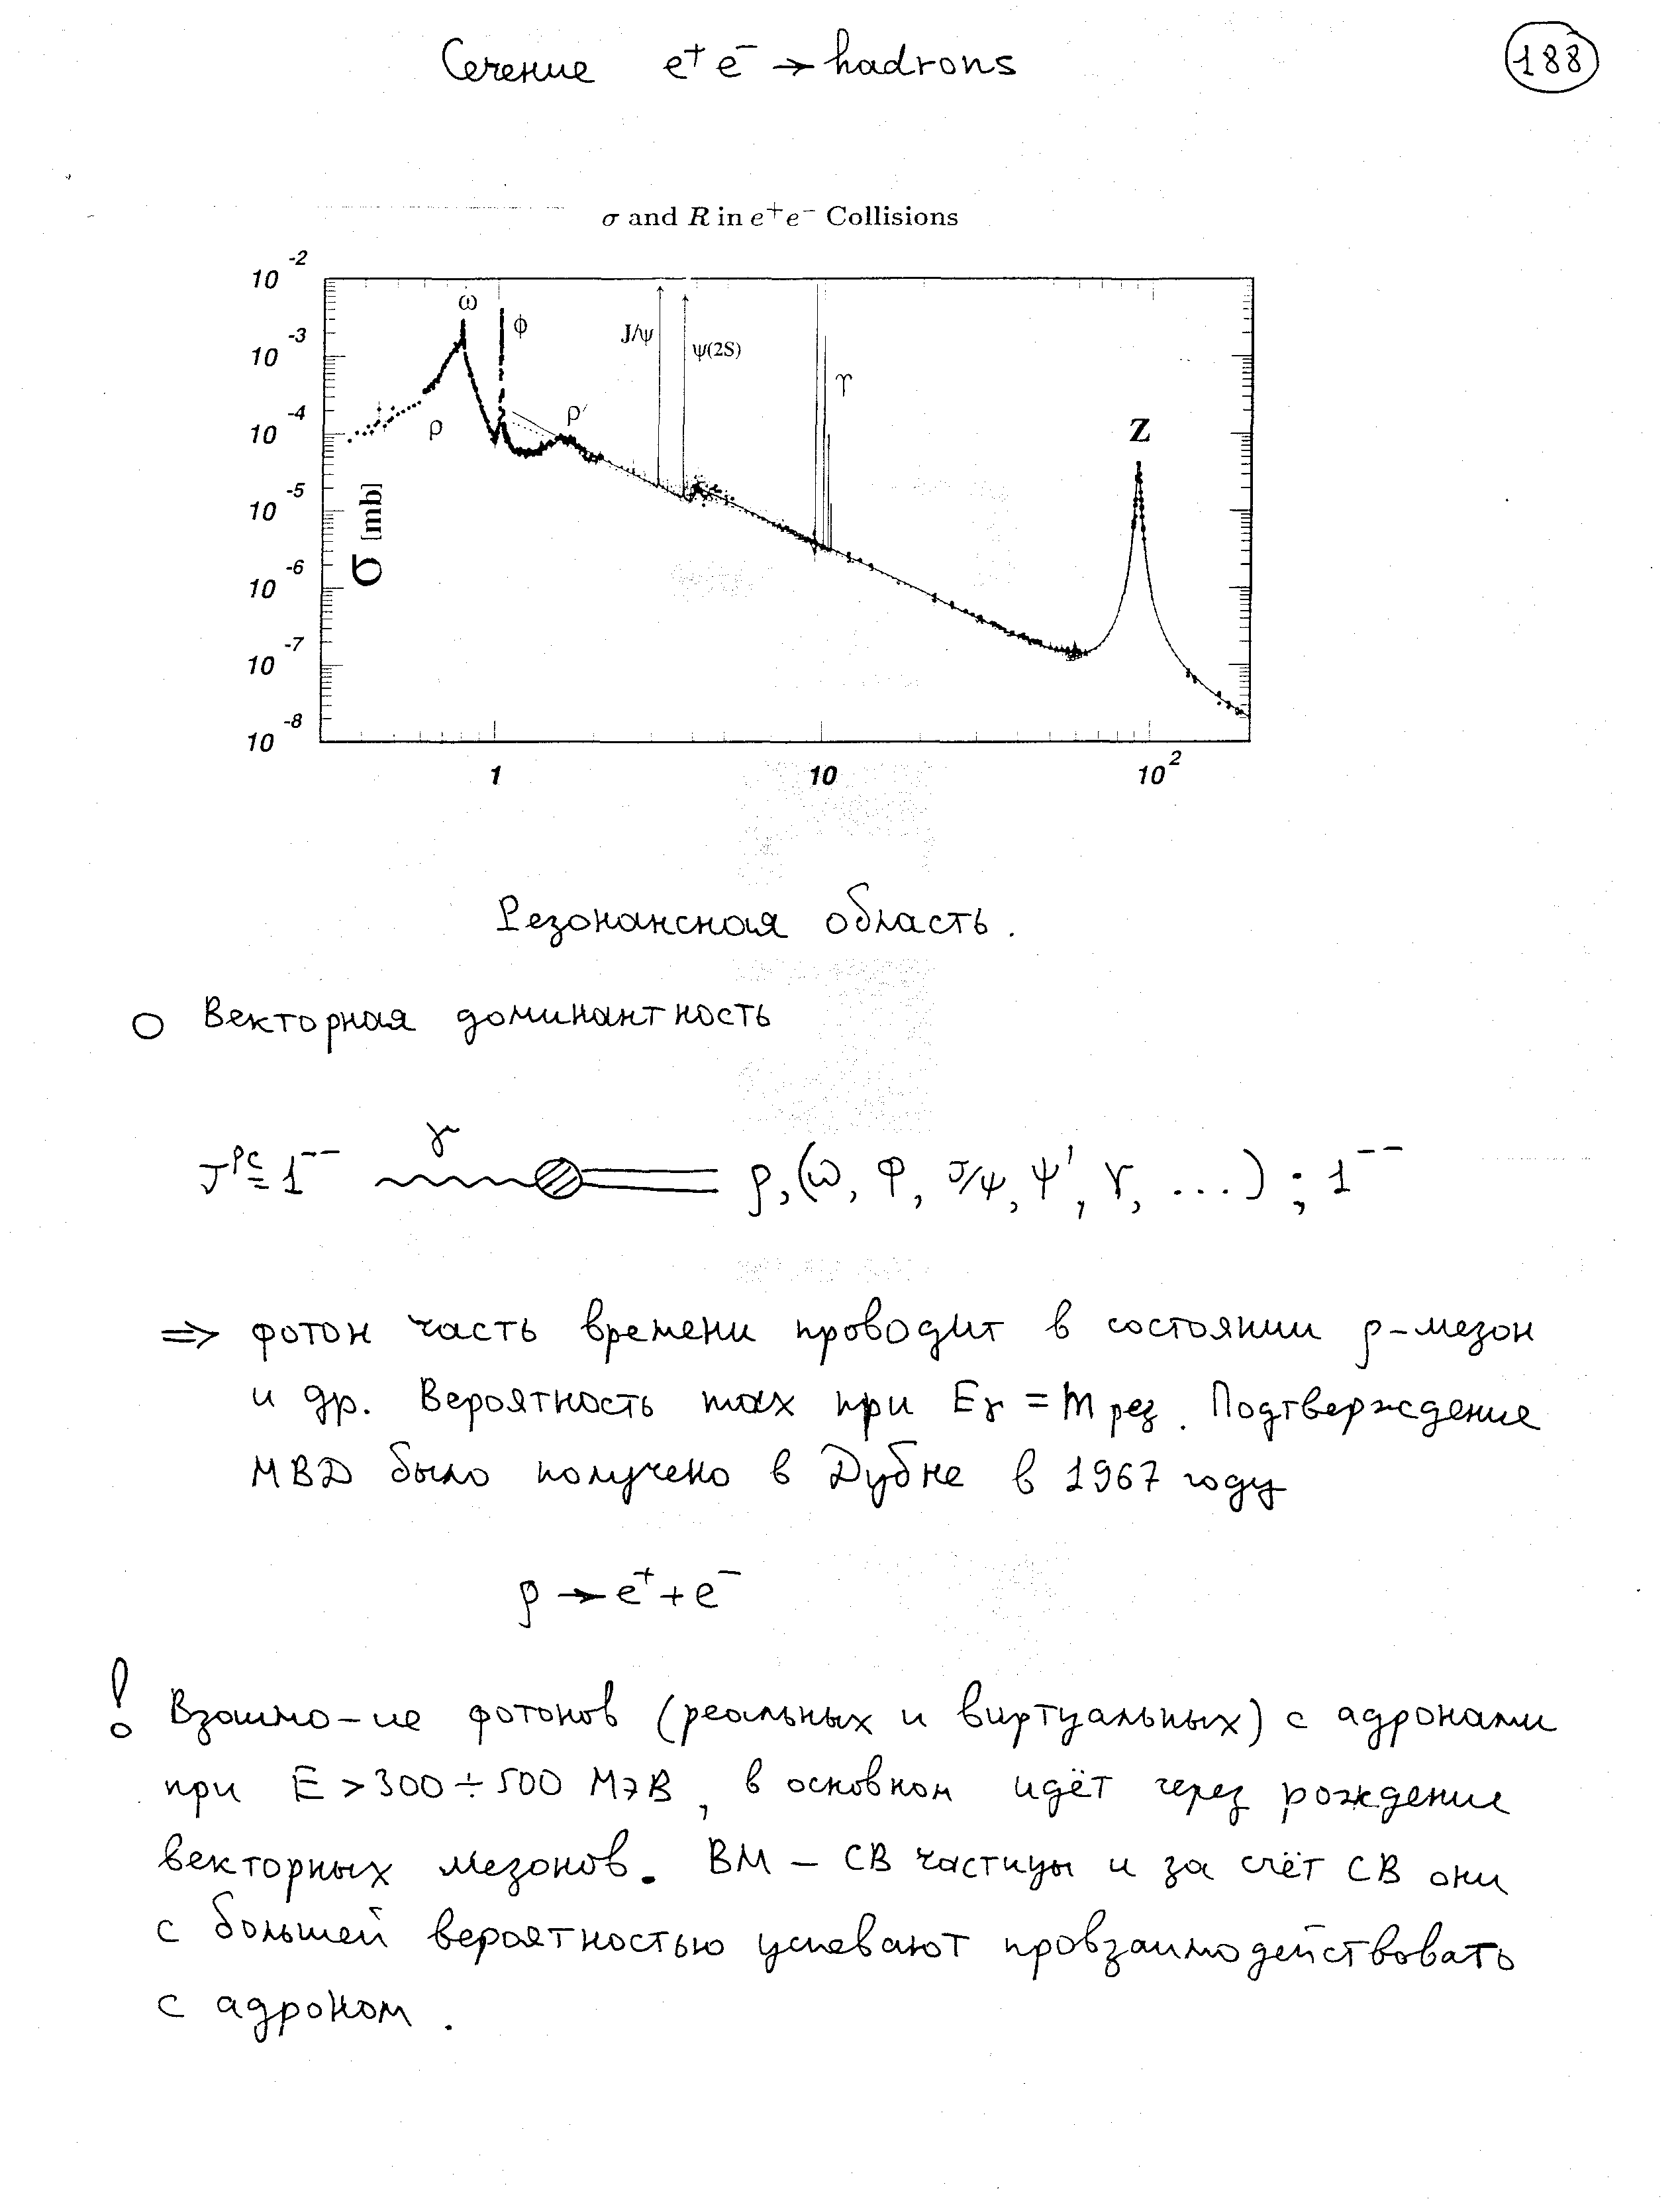 Сечение e⁺e⁻ → hadrons
188
σ and R in e⁺e⁻ Collisions
10⁻²
10⁻³
10⁻⁴
10⁻⁵
10⁻⁶
10⁻⁷
10⁻⁸
σ [mb]
ω
ϕ
ρ
ρ′
J/ψ
ψ(2S)
ϒ
Z
1 10 10²
Резонансная область.
○ Векторная доминантность
γ
J^PC = 1⁻⁻ ρ, (ω, φ, J/ψ, ψ′, ϒ, ...) ; 1⁻⁻
⇒ фотон часть времени проводит в состоянии ρ-мезон
и др. Вероятность max при Eγ = m рез. Подтверждение
МВД было получено в Дубне в 1967 году
ρ → e⁺ + e⁻
! Взаимо-ие фотонов (реальных и виртуальных) с адронами
при E > 300 ÷ 500 МэВ, в основном идёт через рождение
векторных мезонов. ВМ – СВ частицы и за счёт СВ они
с большей вероятностью успевают провзаимодействовать
с адроном.